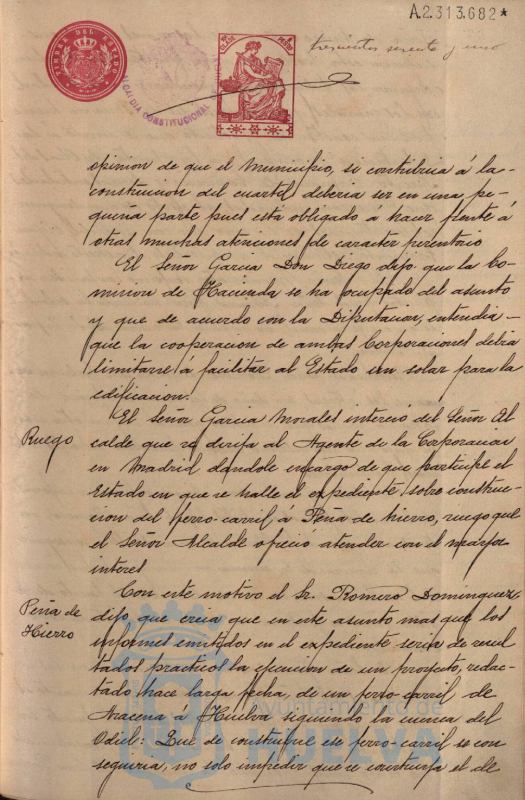 A.2.313.682*
TIMBRE DEL ESTADO
ALCALDÍA CONSTITUCIONAL
trescientos sesenta y uno
opinion de que el Municipio, si contribuia á la
construcion del cuartel deberia ser en una pe-
queña parte pues está obligado a hacer frente á
otras muchas atenciones de caracter perentorio
El Señor Garcia Don Diego dijo que la Co-
mision de Hacienda se ha ocupado del asunto
y que de acuerdo con la Diputacion, entendia-
que la cooperacion de ambas Corporaciones debia
limitarse á facilitar al Estado un solar para la
edificacion.
Ruego
El Señor Garcia Morales interesó del Señor Al
calde que se dirija al Agente de la Corporacion
en Madrid dandole encargo de que participe el
Estado en que se halle el expediente sobre construc-
cion del ferro-carril á Peña de hierro, ruego que
el Señor Alcalde ofreció atender con el mayor
interes
Peña de
Hierro
Con este motivo el Sr. Romero Dominguez
dijo que creia que en este asunto mas que los
informes emitidos en el expediente seria de resul
tados practicos la ejecucion de un proyecto, redac-
tado hace larga fecha, de un ferro-carril de
Aracena a Huelva siguiendo la cuenca del
Odiel: Que de construirse ese ferro-carril se con
seguiria, no solo impedir que se construya el de
Ayuntamiento de
HUELVA